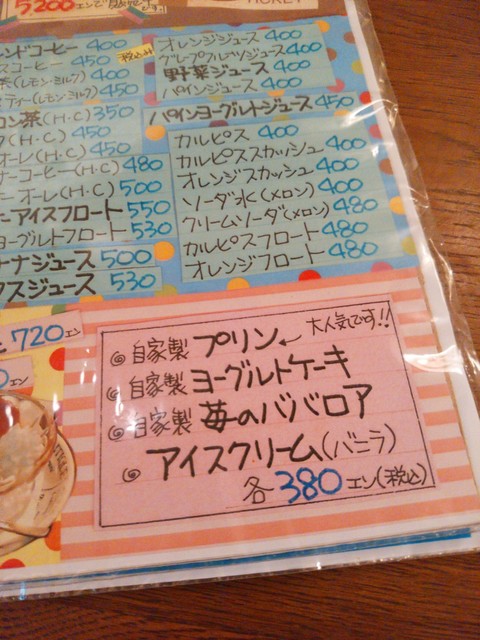 5,200エンで
HONEY
ンドコーヒー 400
スコーヒー 450
税込み
茶(レモン・ミルク) 400
ティー(レモン・ミルク) 450
コン茶(H・C) 350
(H・C) 450
オーレ(H・C) 450
ナーコーヒー(H・C) 480
オーレ(H・C) 500
ーアイスフロート 550
ヨーグルトフロート 530
ナナジュース 500
クスジュース 530
オレンジジュース 400
グレープフルーツジュース 400
野菜ジュース 400
パインジュース 400
パインヨーグルトジュース 450
カルピス 400
カルピススカッシュ 400
オレンジスカッシュ 400
ソーダ水(メロン) 400
クリームソーダ(メロン) 480
カルピスフロート 480
オレンジフロート 480
720エン
0エン
自家製 プリン← 大人気です!!
自家製 ヨーグルトケーキ
自家製 苺のババロア
アイスクリーム(バニラ)
各380エン(税込)